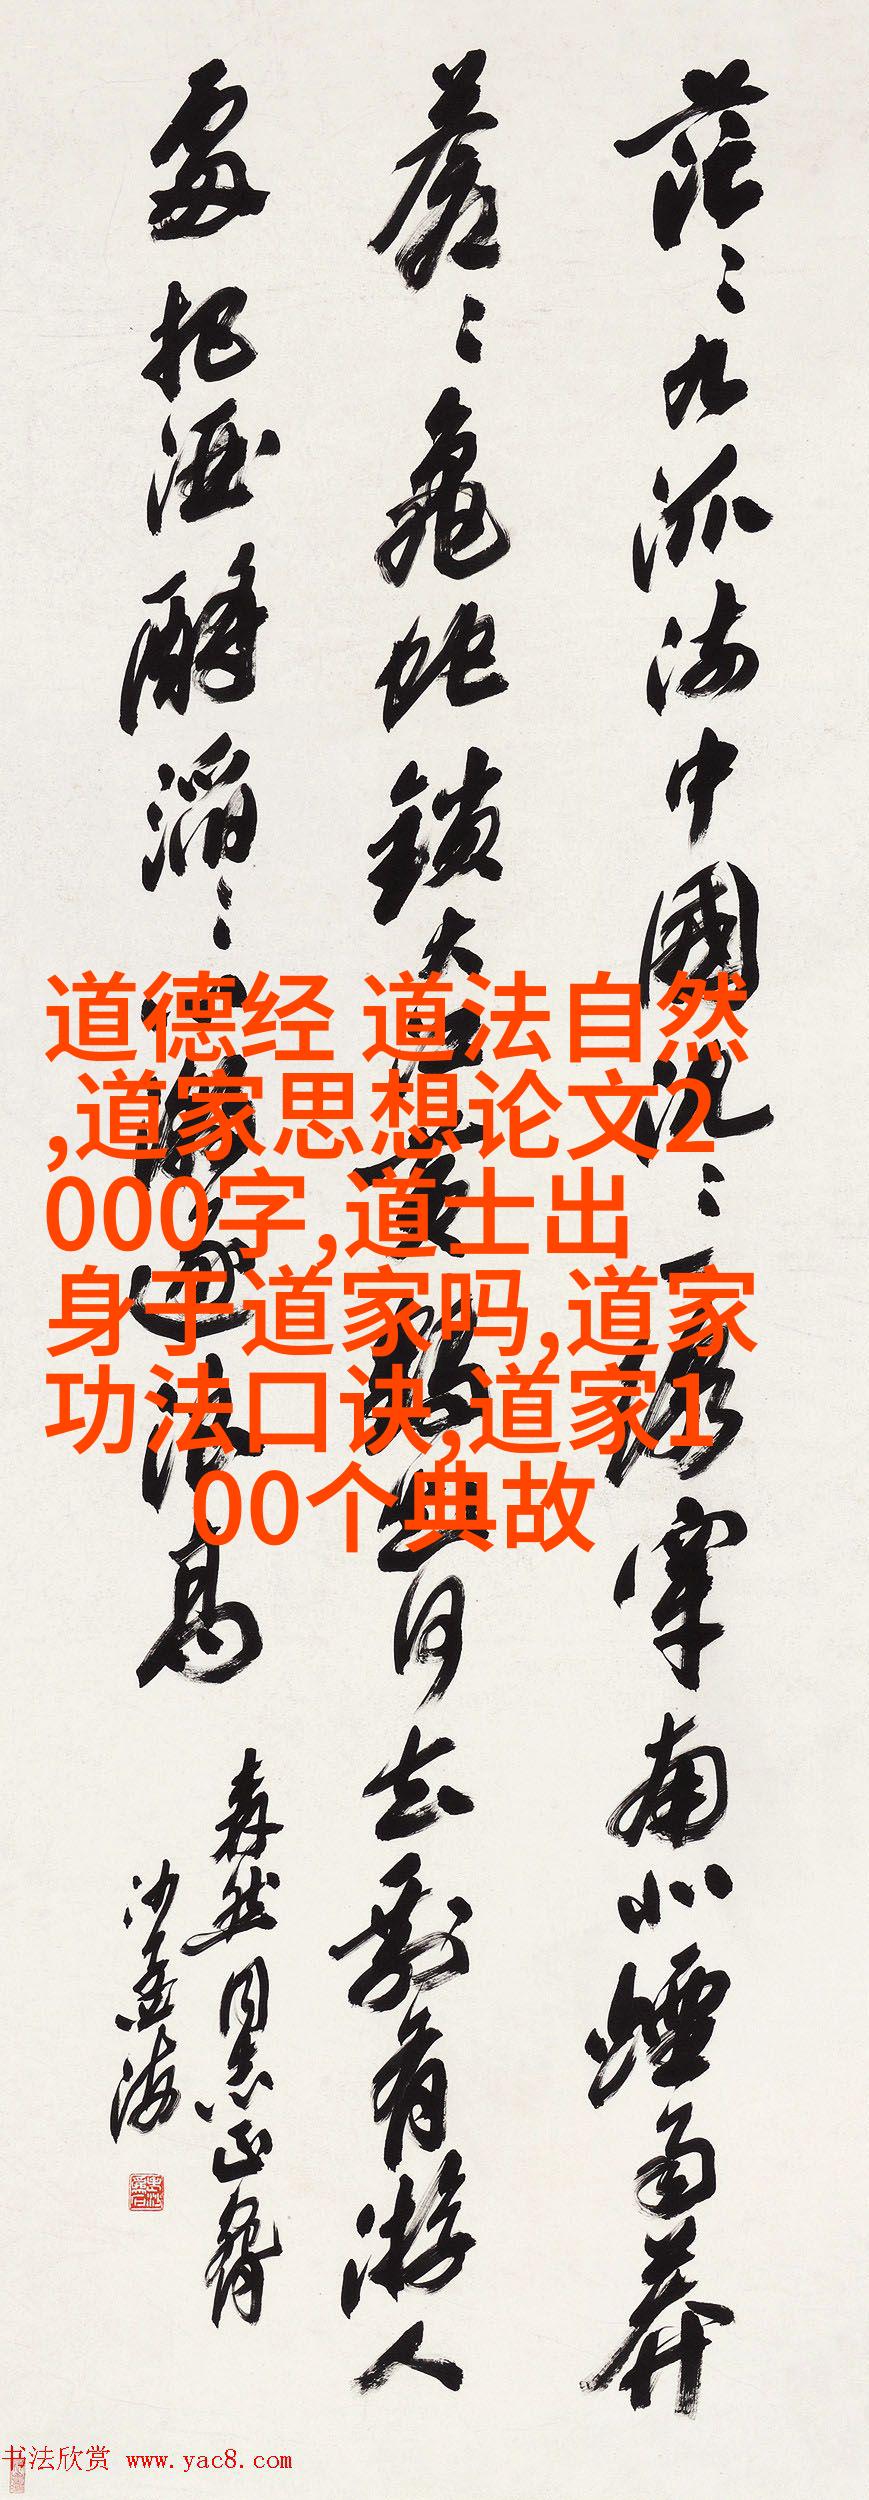 茫〻九派流中國沈〻一線穿南北煙雨莽
蒼〻龜蛇鎖大江黃鶴知何去剩有游人
處把酒酹滔〻心潮逐浪高
森然同志正腕
沙孟海
道德经 道法自然
,道家思想论文2
000字,道士出
身于道家吗,道家
功法口诀,道家1
00个典故
书法欣赏 www.yac8.com